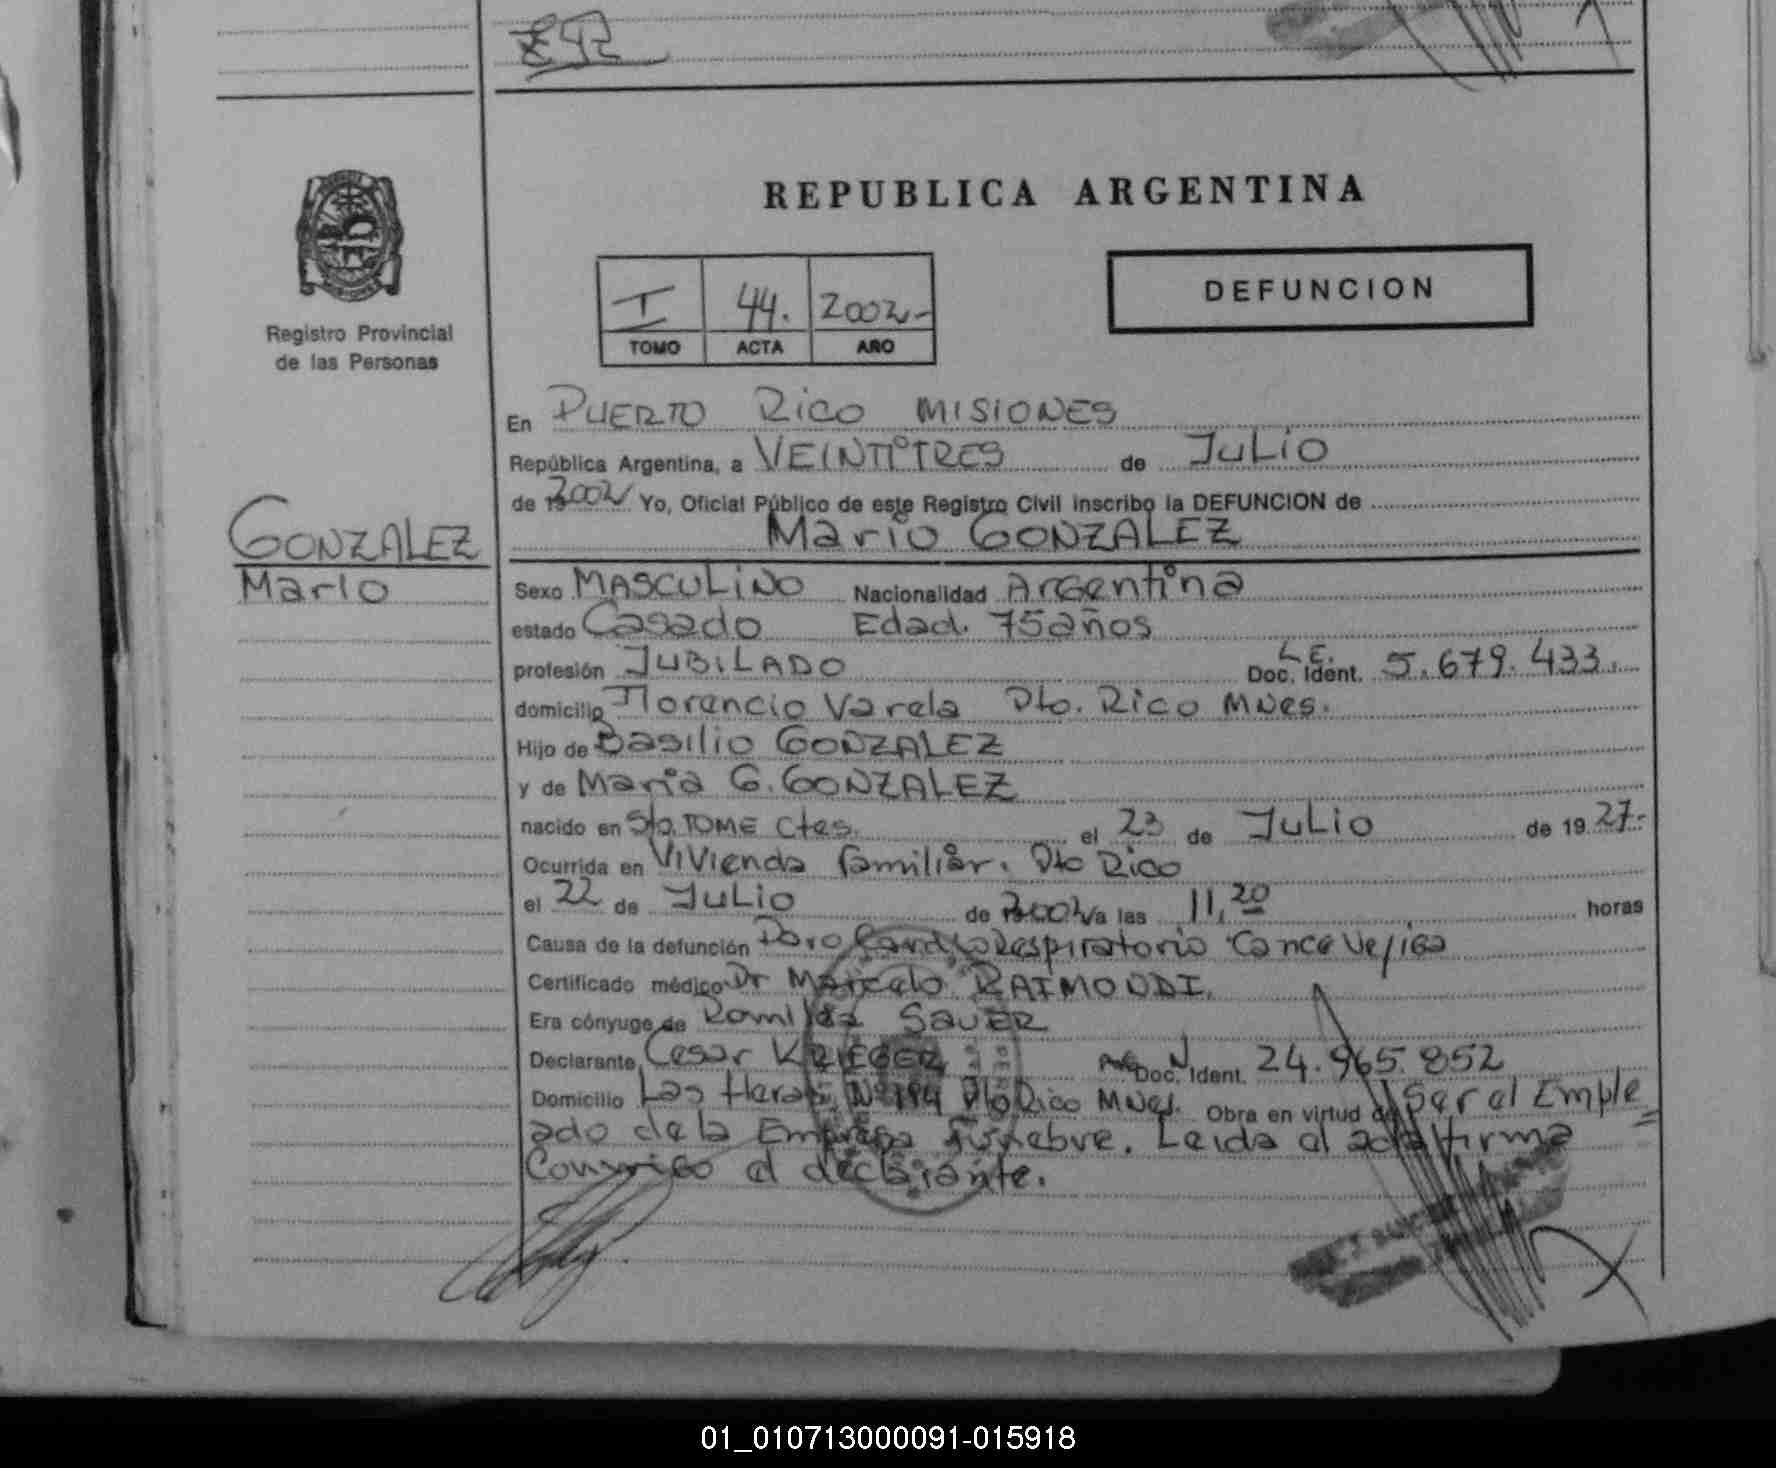 292
REPUBLICA ARGENTINA
DEFUNCION
I 44. 2002-
TOMO ACTA AÑO
Registro Provincial
de las Personas
En PUERTO RICO MISIONES
República Argentina, a VEINTITRES de JULIO
de 19 2002 Yo, Oficial Público de este Registro Civil inscribo la DEFUNCION de
Mario GONZALEZ
GONZALEZ
Mario
Sexo MASCULINO Nacionalidad Argentina
estado Casado Edad. 75 años
profesión JUBILADO L.E. Doc. Ident. 5.679.433.
domicilio Florencio Varela Pto. Rico Mnes.
Hijo de Basilio GONZALEZ
y de Maria G. GONZALEZ
nacido en Sto. TOME Ctes. el 23 de JULIO de 19 27.-
Ocurrida en Vivienda familiar. Pto Rico
el 22 de JULIO de 2002 a las 11,20 horas
Causa de la defunción Paro CardioRespiratorio Cance Vejiga
Certificado médico Dr Marcelo RAIMONDI.
Era cónyuge de Romilda SAUER
Declarante Cesar KRIEGER Doc. Ident. 24.965.852
Domicilio Las Heras Nº 194 Pto Rico Mnes. Obra en virtud de Ser el Emple
ado de la Empresa Funebre. Leida el acta firma
Conmigo el declarante.
01_010713000091-015918